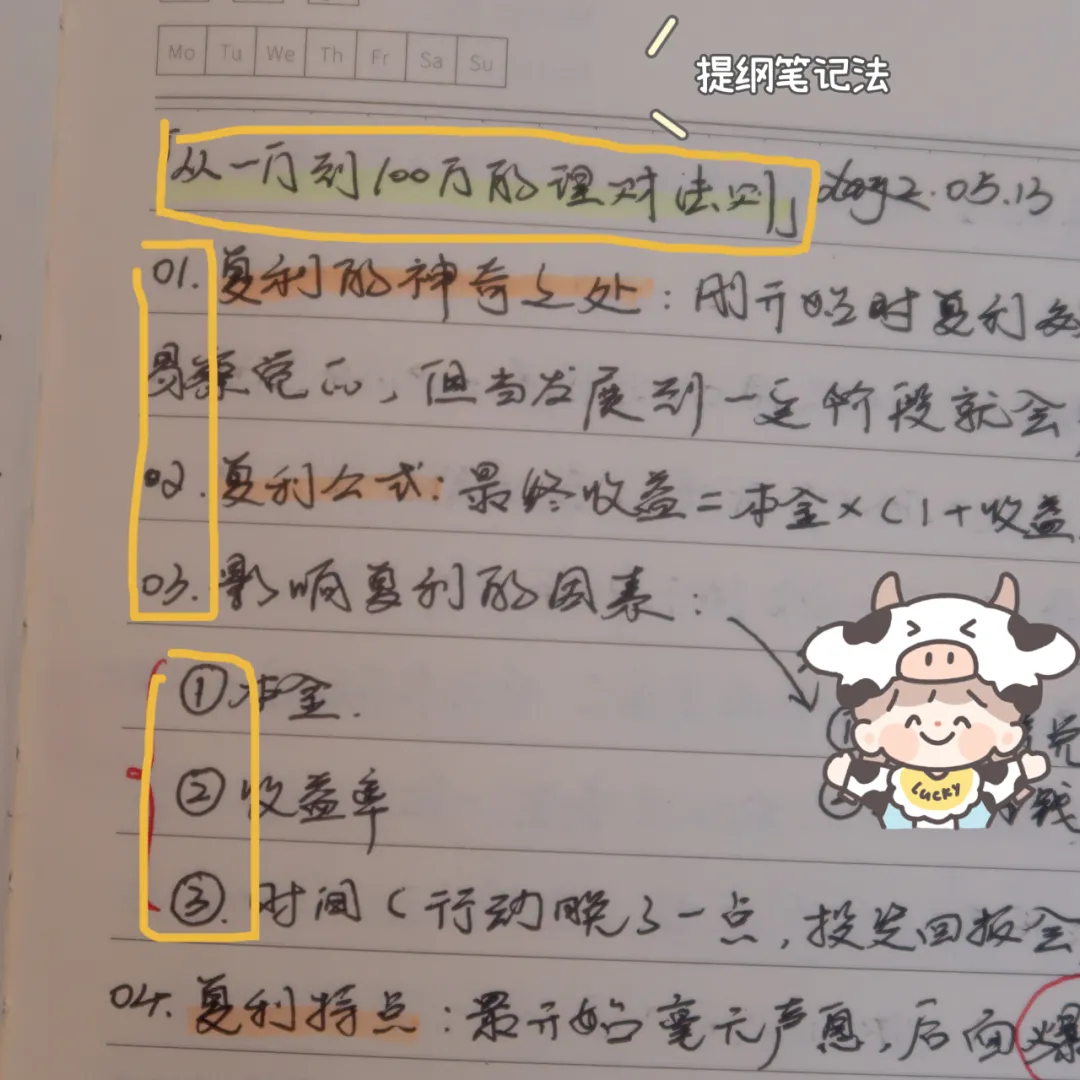 Mo Tu We Th Fr Sa Su
提纲笔记法
「从一万到100万的理财法则」 day2. 05.13
01. 复利的神奇之处：刚开始时复利
易察觉的，但当发展到一定阶段就会
02. 复利公式：最终收益=本金×(1+收益
03. 影响复利的因素：
①本金.
②收益率
③. 时间（行动晚了一点，投资回报会
04. 复利特点：最开始毫无声息，后面爆
LUCKY